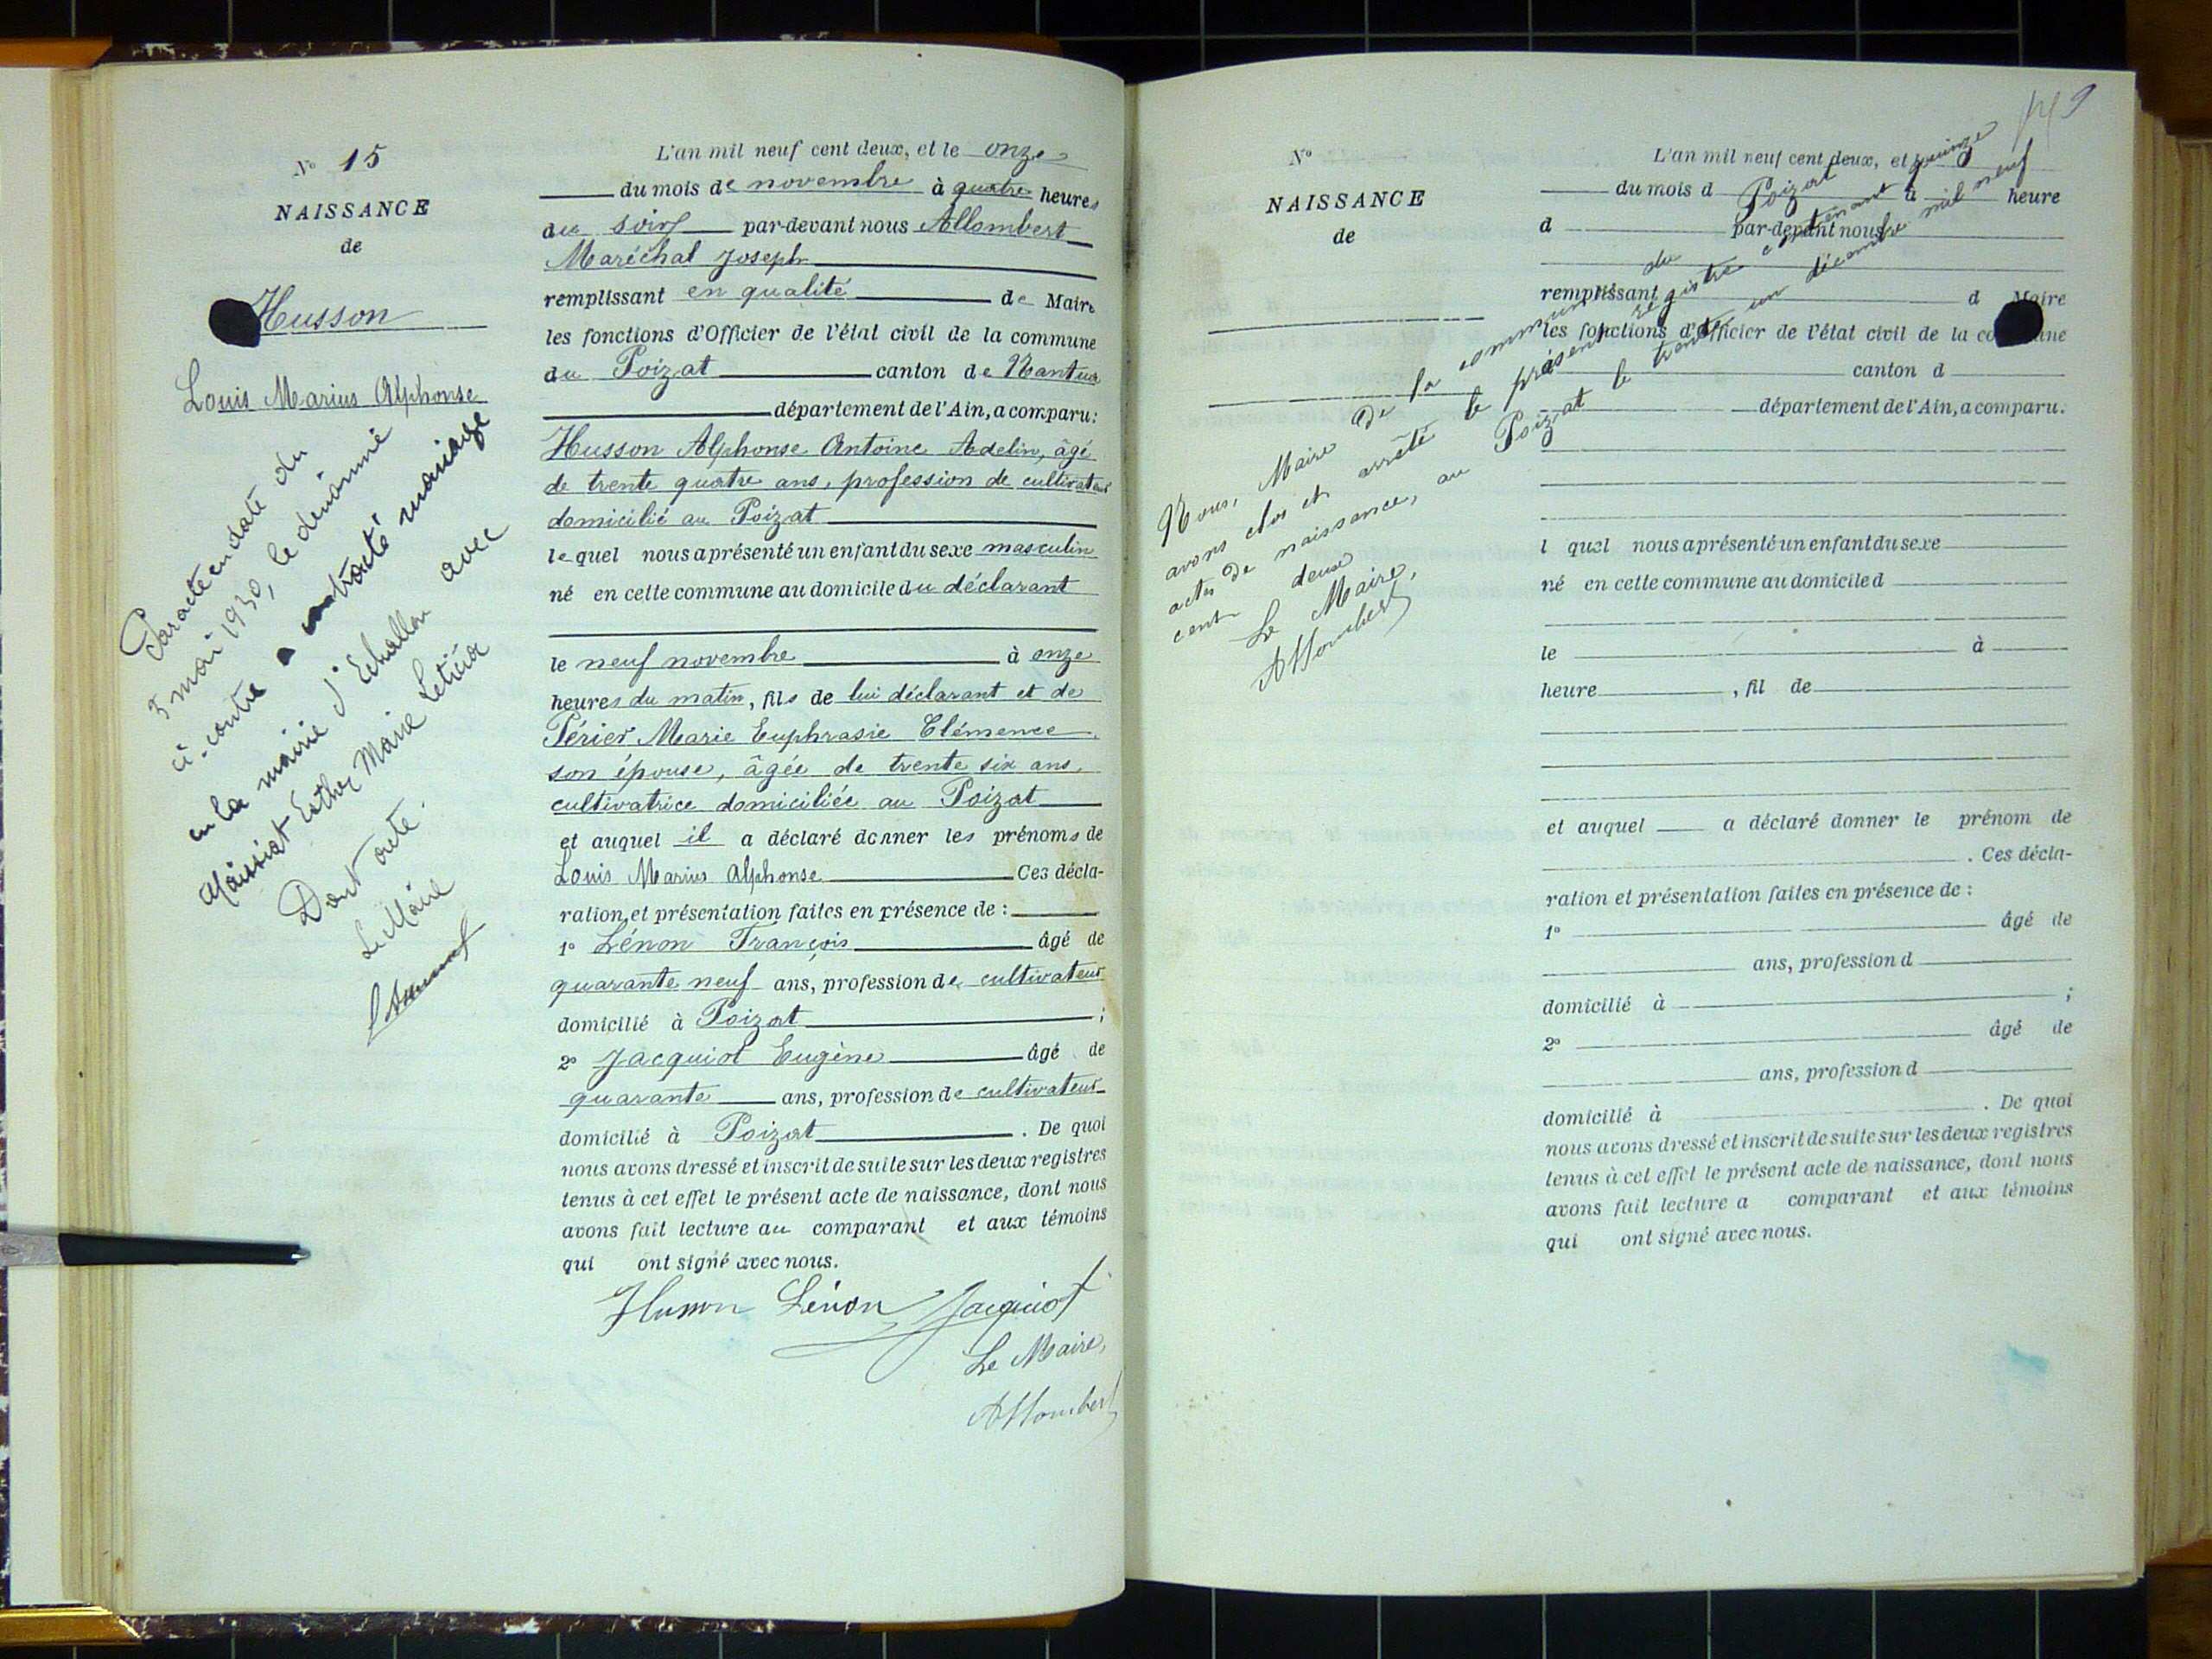 N° 15
NAISSANCE
de
Husson
Louis Marius Alphonse
Par acte en date du
3 mai 1930, le dénommé
ci-contre a contracté mariage
en la mairie d'Echallon avec
Maissiat Esther Marie Leticia
Dont acte.
Le Maire
L'an mil neuf cent deux, et le onze
du mois de novembre à quatre heures
du soir par-devant nous Allombert
Maréchal Joseph
remplissant en qualité de Maire
les fonctions d'Officier de l'état civil de la commune
du Poizat canton de Nantua
département de l'Ain, a comparu:
Husson Alphonse Antoine Adelin, âgé
de trente quatre ans, profession de cultivateur
domicilié au Poizat
lequel nous a présenté un enfant du sexe masculin
né en cette commune au domicile du déclarant
le neuf novembre à onze
heures du matin, fils de lui déclarant et de
Périer Marie Euphrasie Clémence
son épouse, âgée de trente six ans,
cultivatrice domiciliée au Poizat
et auquel il a déclaré donner les prénoms de
Louis Marius Alphonse Ces décla-
ration et présentation faites en présence de :
1° Lénon François âgé de
quarante neuf ans, profession de cultivateur
domicilié à Poizat ;
2° Jacquiot Eugène âgé de
quarante ans, profession de cultivateur
domicilié à Poizat . De quoi
nous avons dressé et inscrit de suite sur les deux registres
tenus à cet effet le présent acte de naissance, dont nous
avons fait lecture au comparant et aux témoins
qui ont signé avec nous.
Husson Lénon Jacquiot
Le Maire,
Allombert
N°
NAISSANCE
de
Nous, Maire de la commune du Poizat
avons clos et arrêté le présent registre contenant quinze
actes de naissance, au Poizat le trente un décembre mil neuf
cent deux
Le Maire,
Allombert
L'an mil neuf cent deux, et
du mois d à heure
d par-devant nous
remplissant d Maire
les fonctions d'Officier de l'état civil de la commune
canton d
département de l'Ain, a comparu.
l quel nous a présenté un enfant du sexe
né en cette commune au domicile d
le à
heure , fil de
et auquel a déclaré donner le prénom de
. Ces décla-
ration et présentation faites en présence de :
1° âgé de
ans, profession d
domicilié à ;
2° âgé de
ans, profession d
domicilié à . De quoi
nous avons dressé et inscrit de suite sur les deux registres
tenus à cet effet le présent acte de naissance, dont nous
avons fait lecture a comparant et aux témoins
qui ont signé avec nous.